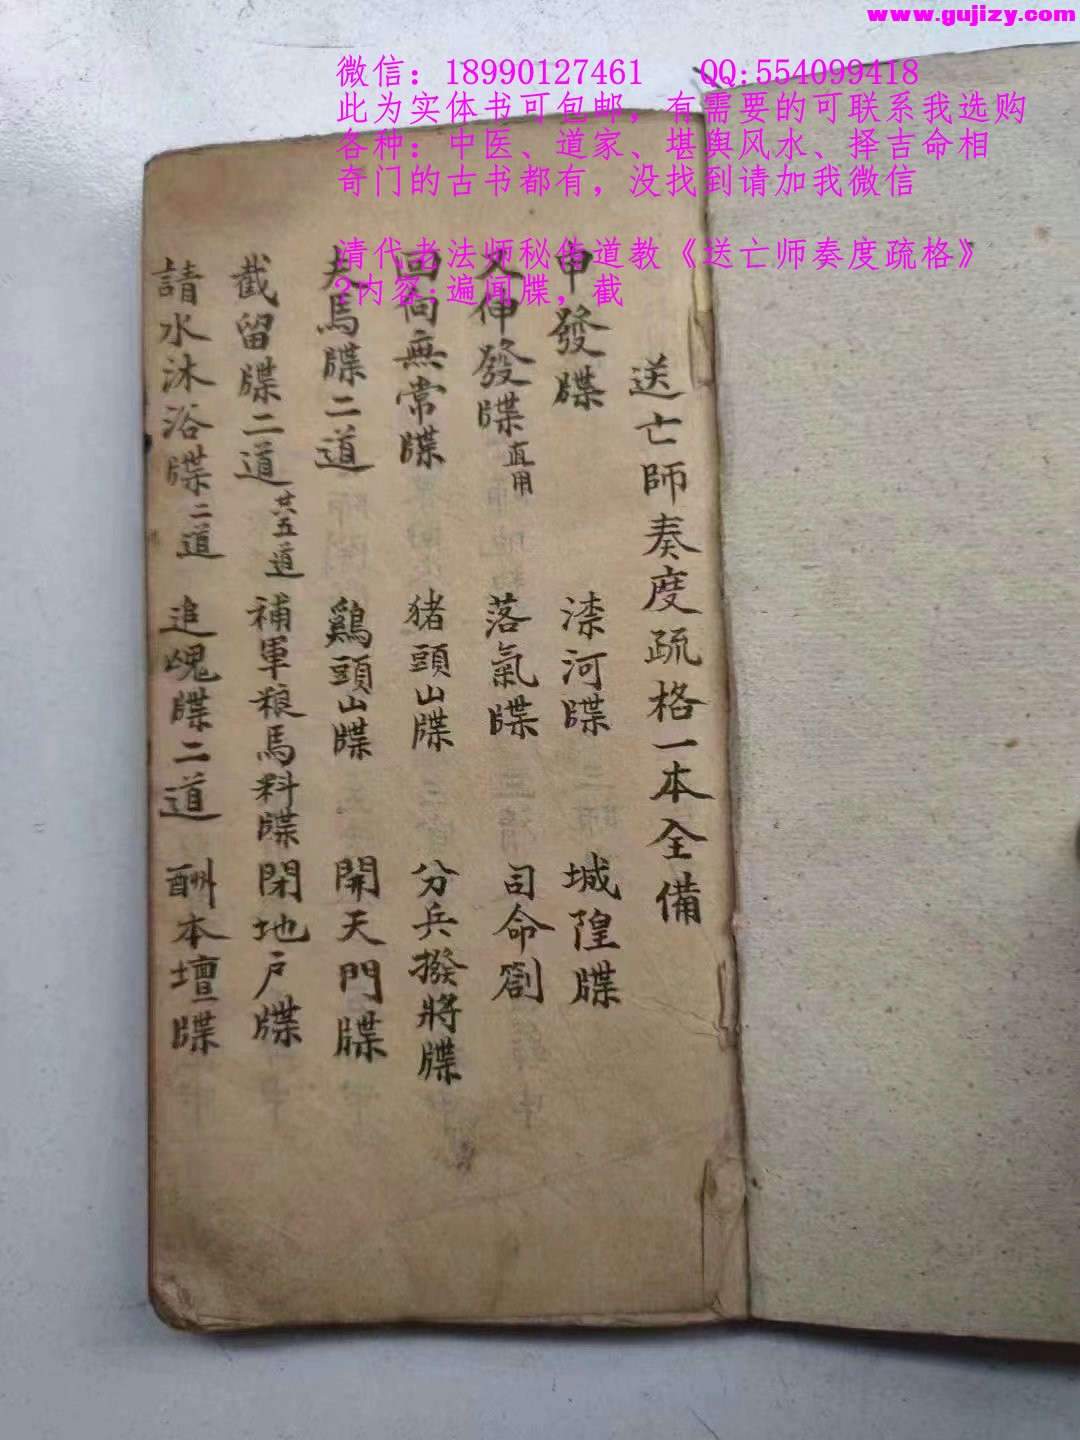 www.gujizy.com
微信：18990127461 QQ:554099418
此为实体书可包邮，有需要的可联系我选购
各种：中医、道家、堪舆风水、择吉命相
奇门的古书都有，没找到请加我微信
清代老法师秘传道教《送亡师奏度疏格》
2内容:遍闻牒，截
送亡師奏度疏格一本全備
申發牒 滦河牒 城隍牒
又伸發牒直用 落氣牒 司命劄
回向無常牒 猪頭山牒 分兵撥將牒
夫馬牒二道 鷄頭山牒 開天門牒
截留牒二道共五道 補軍粮馬料牒 閉地户牒
請水沐浴牒二道 追魂牒二道 酬本壇牒